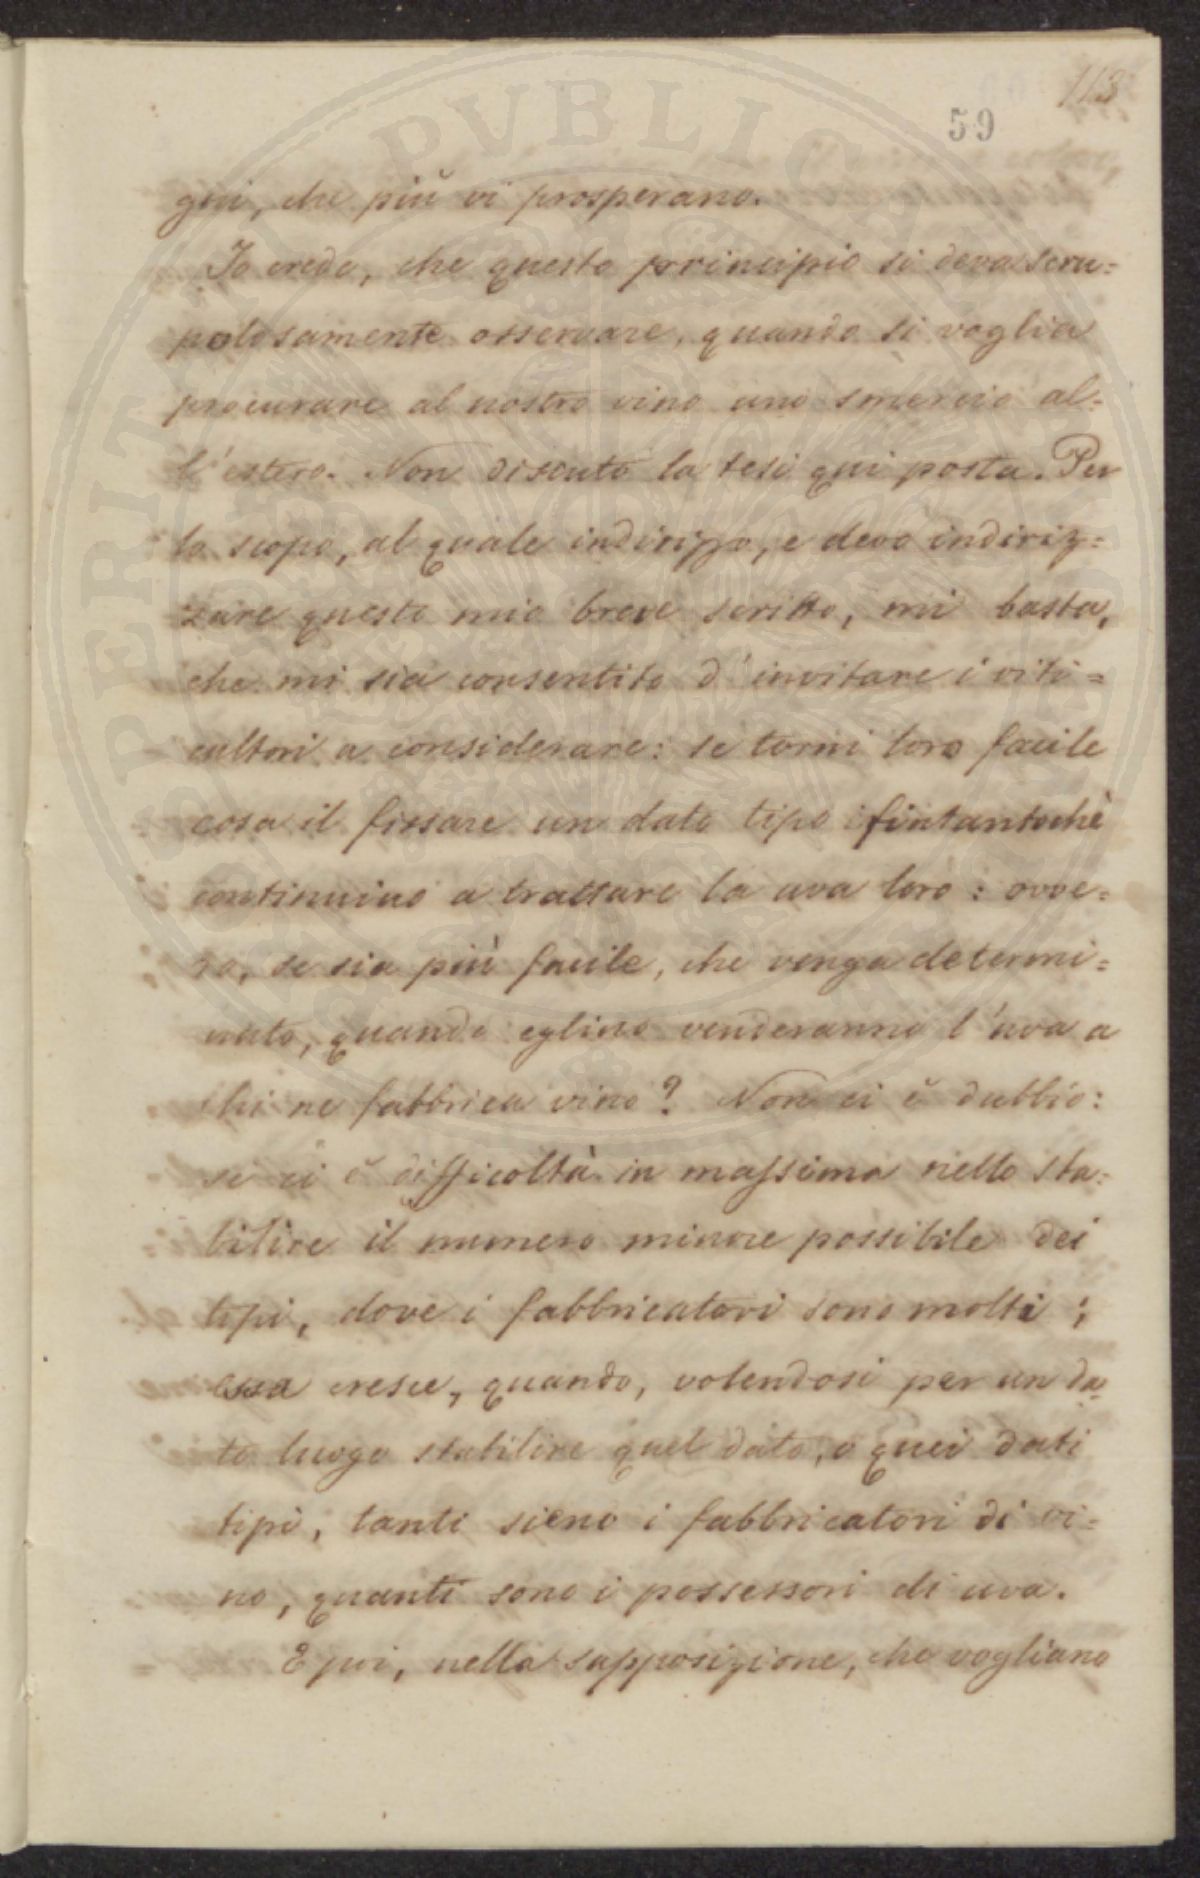 113
59
gni, che più vi prosperano.
Io credo, che questo principio si deva scru=
polosamente osservare, quando si voglia
procurare al nostro vino uno smercio al=
l'estero. Non discuto la tesi qui posta. Per
lo scopo, al quale indirizzo, e devo indiriz=
zare questo mio breve scritto, mi basta,
che mi sia consentito d'invitare i viti=
cultori a considerare: se torni loro facile
cosa il fissare un dato tipo fintantochè
continuino a trattare la uva loro: ovve=
ro, se sia più facile, che venga determi=
nato, quando eglino venderanno l'uva a
chi ne fabbrica vino? Non ci è dubbio:
se ci è difficoltà in massima nello sta=
bilire il numero minore possibile dei
tipi, dove i fabbricatori sono molti;
essa cresce, quando, volendosi per un da=
to luogo stabilire quel dato, o quei dati
tipi, tanti sieno i fabbricatori di vi=
no, quanti sono i possessori di uva.
E poi, nella supposizione, che vogliano